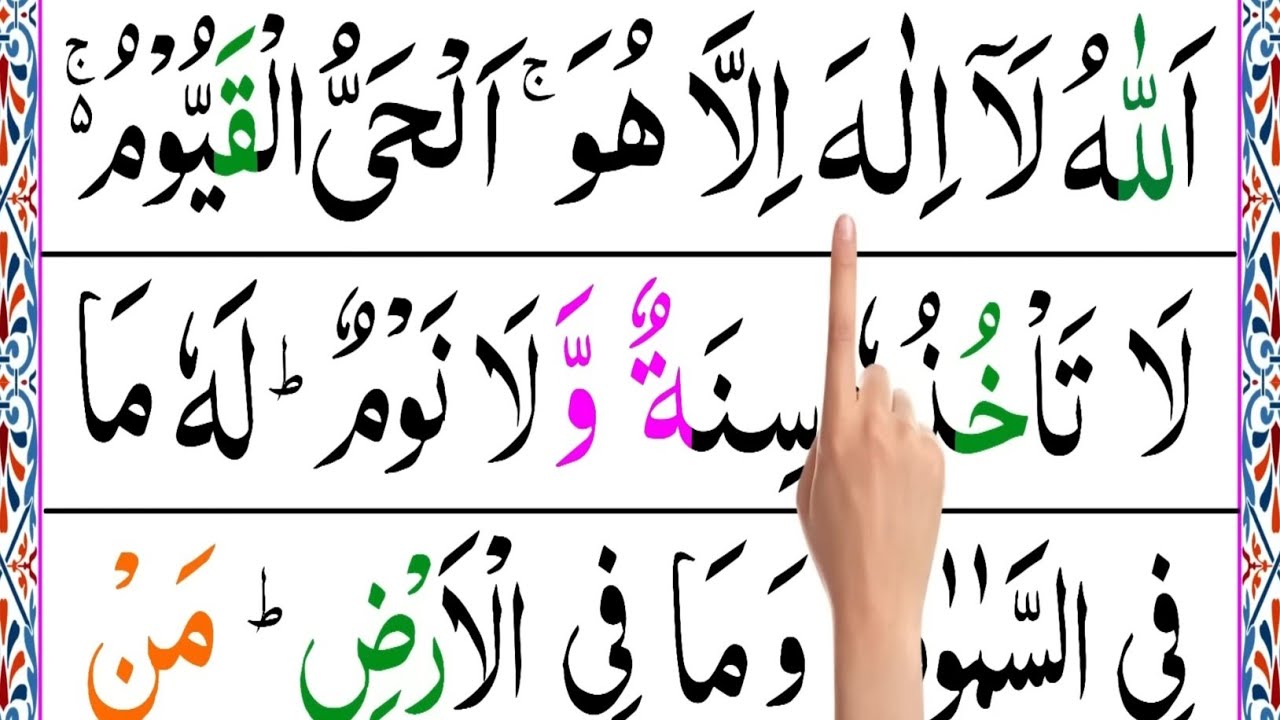 اَللّٰهُ لَاۤ اِلٰهَ اِلَّا هُوَ ۚ اَلْحَیُّ الْقَیُّوْمُ ۚ۵
لَا تَاْخُذُهٗ سِنَةٌ وَّ لَا نَوْمٌ ؕ لَهٗ مَا
فِی السَّمٰوٰتِ وَ مَا فِی الْاَرْضِ ؕ مَنْ